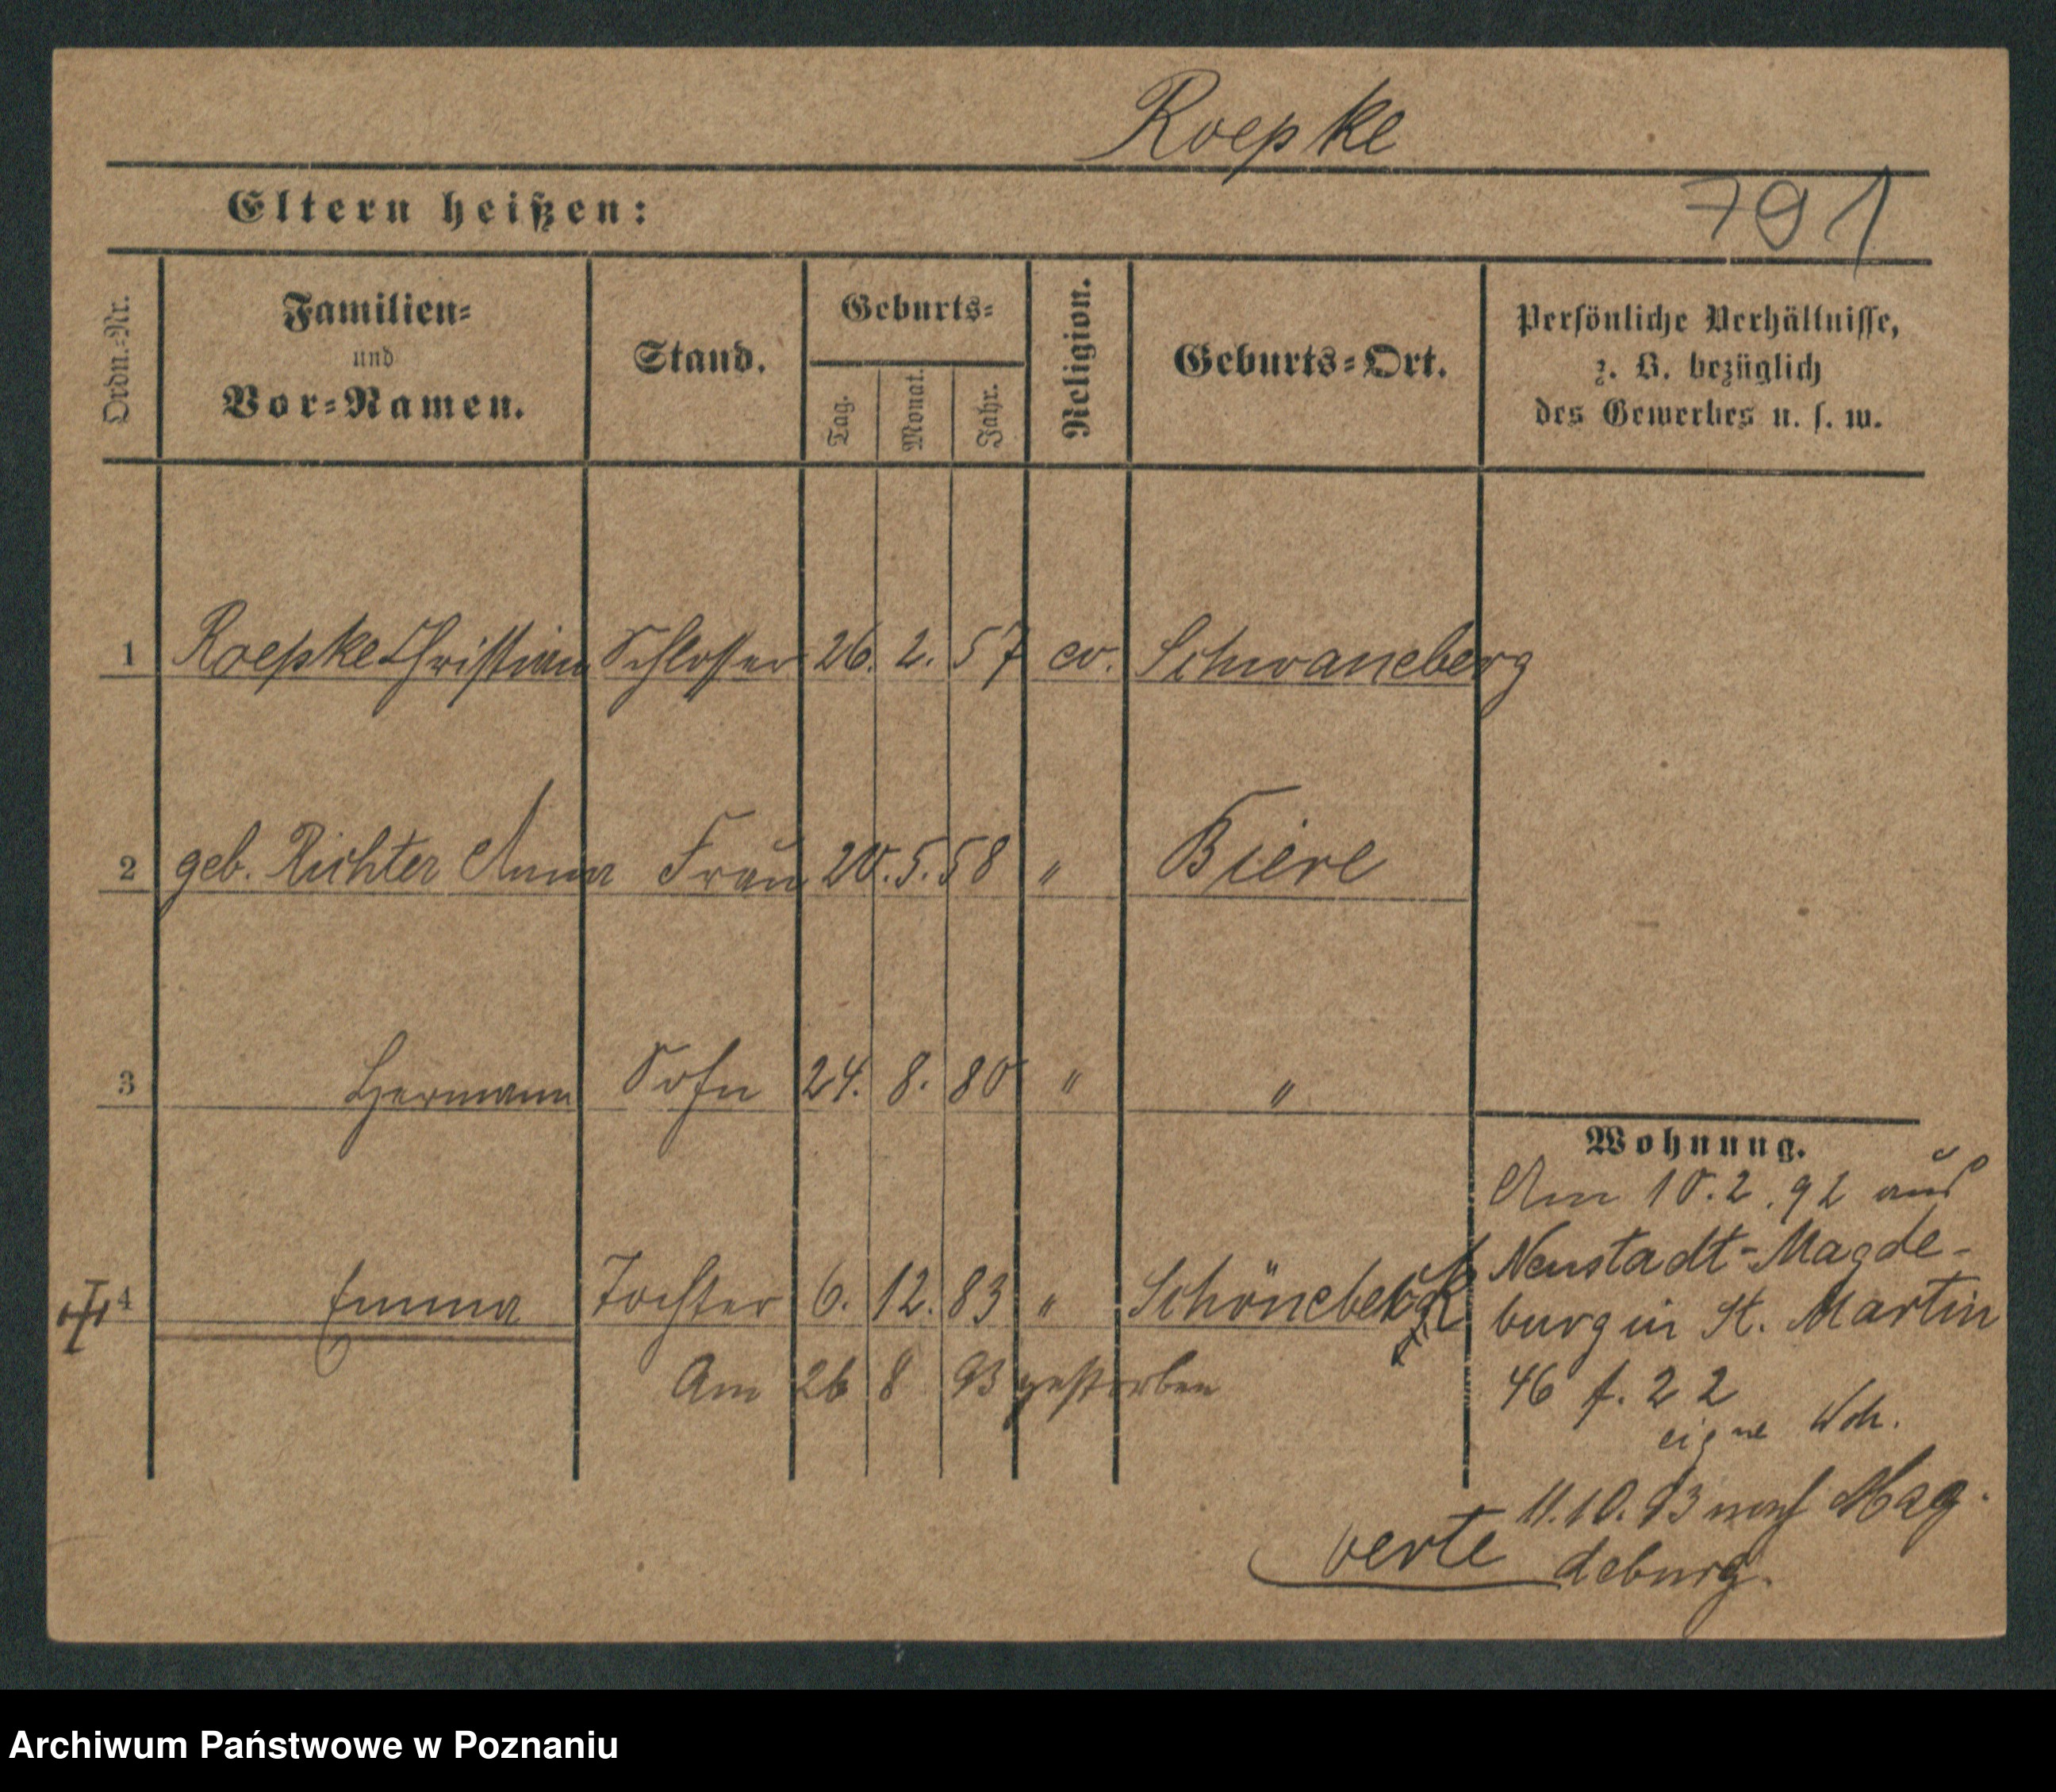 Roepke
791
Eltern heißen:
Ordn.-Nr.
Familien-
und
Vor-Namen.
Stand.
Geburts-
Tag.
Monat.
Jahr.
Religion.
Geburts-Ort.
Persönliche Verhältnisse,
z. B. bezüglich
des Gewerbes u. s. w.
1 Roepke Christian Schlosser 26. 2. 57 ev. Schwaneberg
2 geb. Richter Anna Frau 20. 5. 58 " Biere
3 Hermann Sohn 24. 8. 80 " "
4 Emma Tochter 6. 12. 83 " Schönebeck
Am 26 8 93 gestorben
Wohnung.
Am 10. 2. 92 aus
Neustadt-Magde-
burg in St. Martin
46 f. 22
eigne Woh.
11. 10. 93 nach Mag-
deburg.
verte
Archiwum Państwowe w Poznaniu